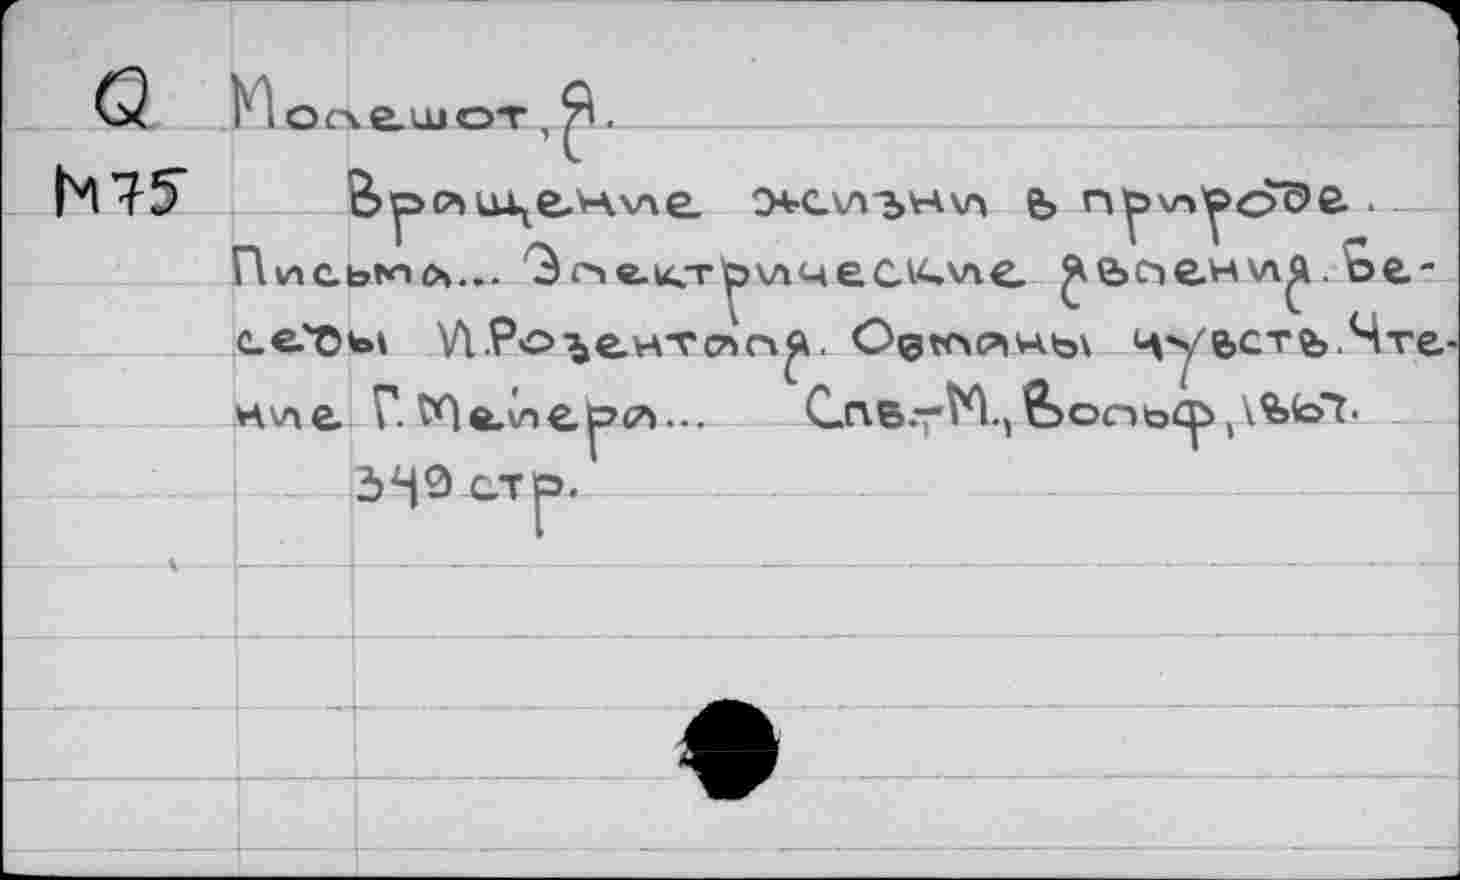 Q Молешот, Я.
М75 Вращение жизни в природе.
Письма... Электрические явления. Бе-
седы И.Розенталя. Обманы чувств. Чте-
ние Г. Мейера... Спб.-М., Вольф, 1867.
349 стр.